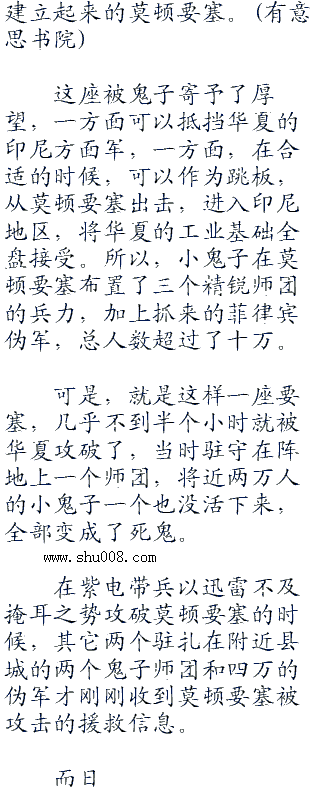 建立起来的莫顿要塞。(有意
思书院)
这座被鬼子寄予了厚
望，一方面可以抵挡华夏的
印尼方面军，一方面，在合
适的时候，可以作为跳板，
从莫顿要塞出击，进入印尼
地区，将华夏的工业基础全
盘接受。所以，小鬼子在莫
顿要塞布置了三个精锐师团
的兵力，加上抓来的菲律宾
伪军，总人数超过了十万。
可是，就是这样一座要
塞，几乎不到半个小时就被
华夏攻破了，当时驻守在阵
地上一个师团，将近两万人
的小鬼子一个也没活下来，
全部变成了死鬼。
www.shu008.com
在紫电带兵以迅雷不及
掩耳之势攻破莫顿要塞的时
候，其它两个驻扎在附近县
城的两个鬼子师团和四万的
伪军才刚刚收到莫顿要塞被
攻击的援救信息。
而日